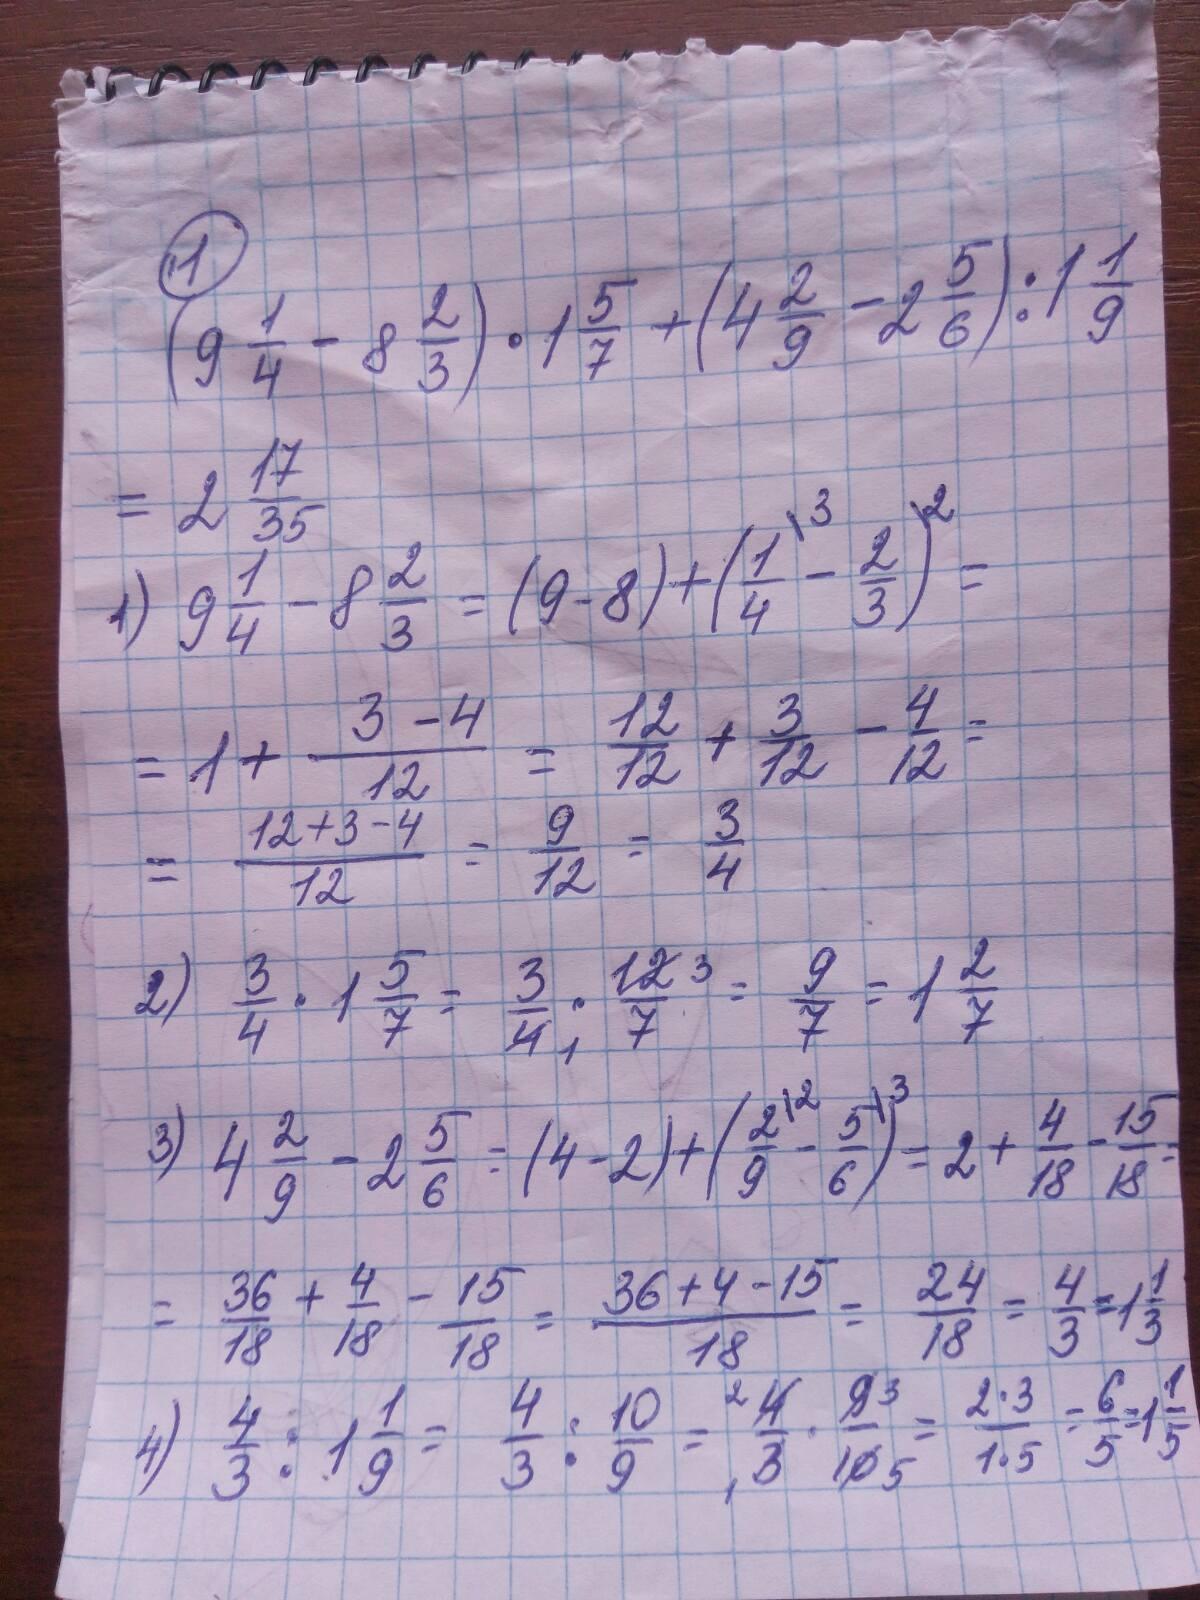 1
(9 1/4 - 8 2/3) · 1 5/7 + (4 2/9 - 2 5/6) : 1 1/9
= 2 17/35
1) 9 1/4 - 8 2/3 = (9-8)+(1/4 \3 - 2/3)\2 =
= 1 + (3-4)/12 = 12/12 + 3/12 - 4/12 =
= (12+3-4)/12 = 9/12 = 3/4
2) 3/4 · 1 5/7 = 3/4 1 · 12/7 3 = 9/7 = 1 2/7
3) 4 2/9 - 2 5/6 = (4-2)+(2/9 \2 - 5/6 \3) = 2 + 4/18 - 15/18 =
= 36/18 + 4/18 - 15/18 = (36+4-15)/18 = 24/18 = 4/3 = 1 1/3
4) 4/3 : 1 1/9 = 4/3 : 10/9 = 2 4/3 1 · 9/10 3 5 = 2·3/1·5 = 6/5 = 1 1/5